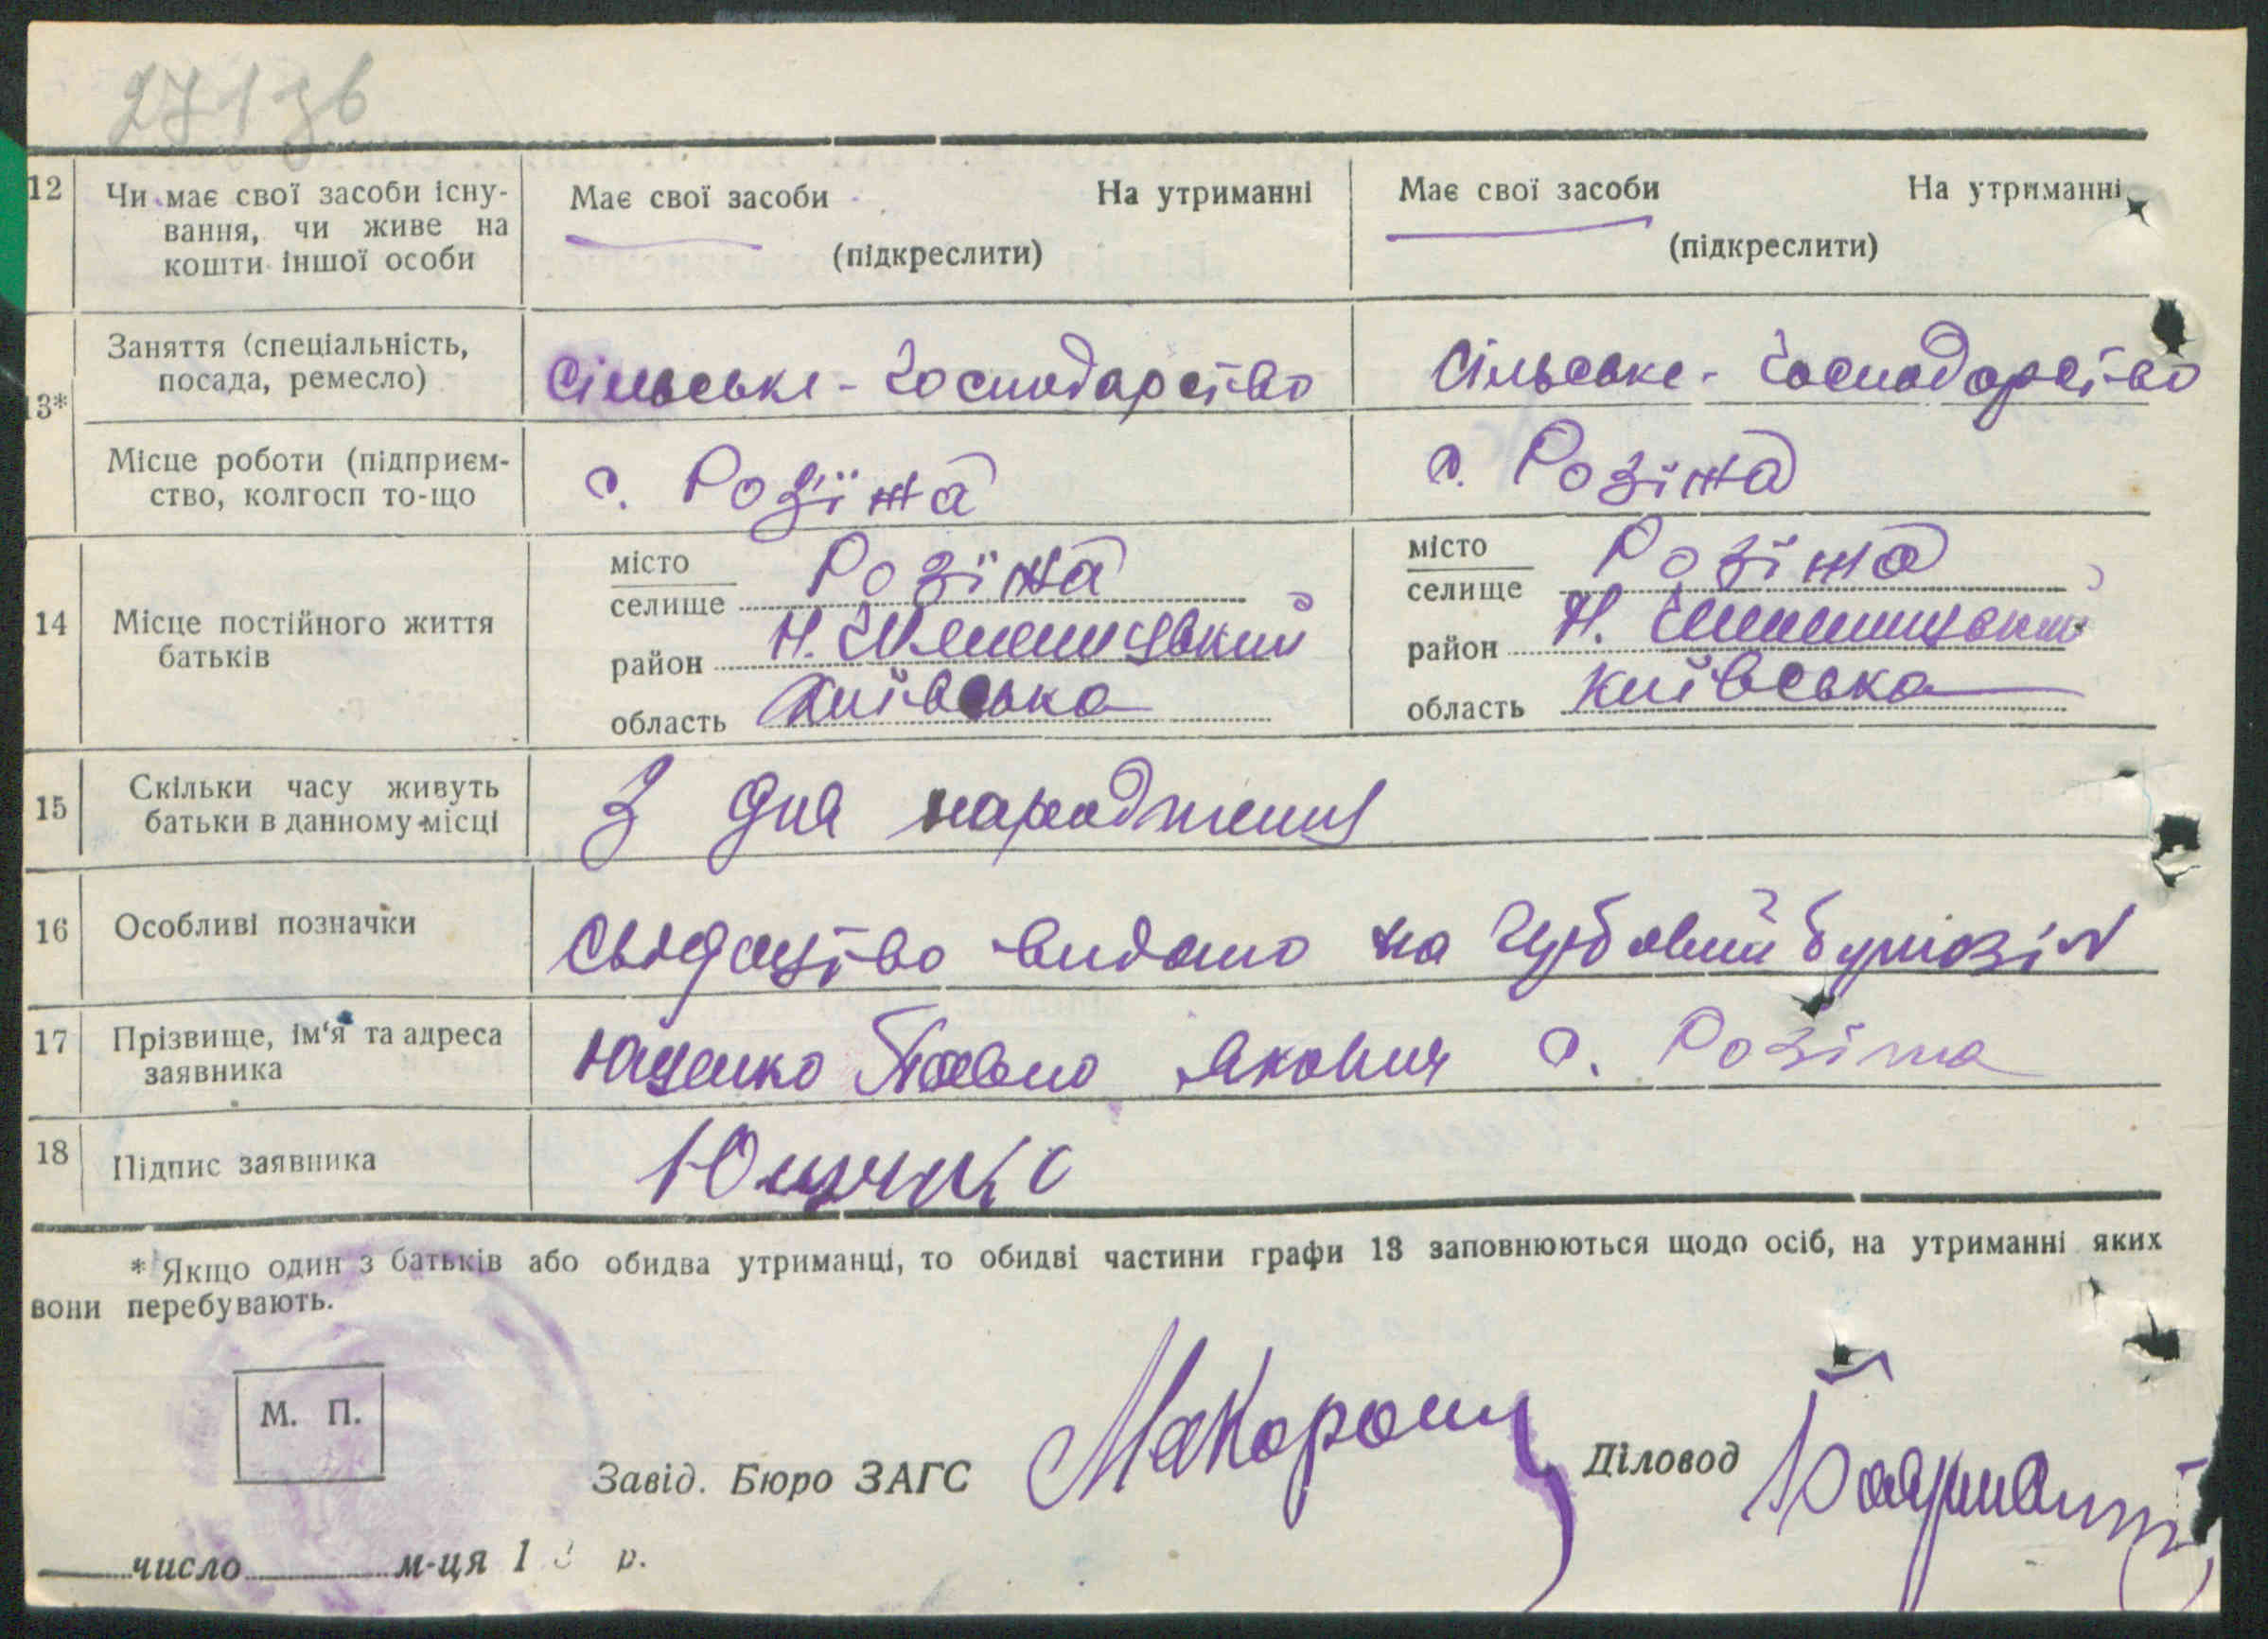 271 зв
12 Чи має свої засоби існу- Має свої засоби На утриманні Має свої засоби На утриманні
вання, чи живе на
кошти іншої особи (підкреслити) (підкреслити)
13* Заняття (спеціальність,
посада, ремесло) Сільське-господарство Сільське-господарство
Місце роботи (підприєм-
ство, колгосп то-що с. Розїжа с. Розїжа
14 Місце постійного життя
батьків
місто
селище Розїжа
район Н. Шепелицький
область Київська
місто
селище Розїжа
район Н. Шепелицький
область Київська
15 Скільки часу живуть
батьки в данному місці З дня народження
16 Особливі позначки видано на
17 Прізвище, ім'я та адреса
заявника Ющенко Павло Якович с. Розїжа
18 Підпис заявника Ющенко
* Якщо один з батьків або обидва утриманці, то обидві частини графи 13 заповнюються щодо осіб, на утриманні яких
вони перебувають.
М. П.
Завід. Бюро ЗАГС Діловод
число м-ця 1 р.